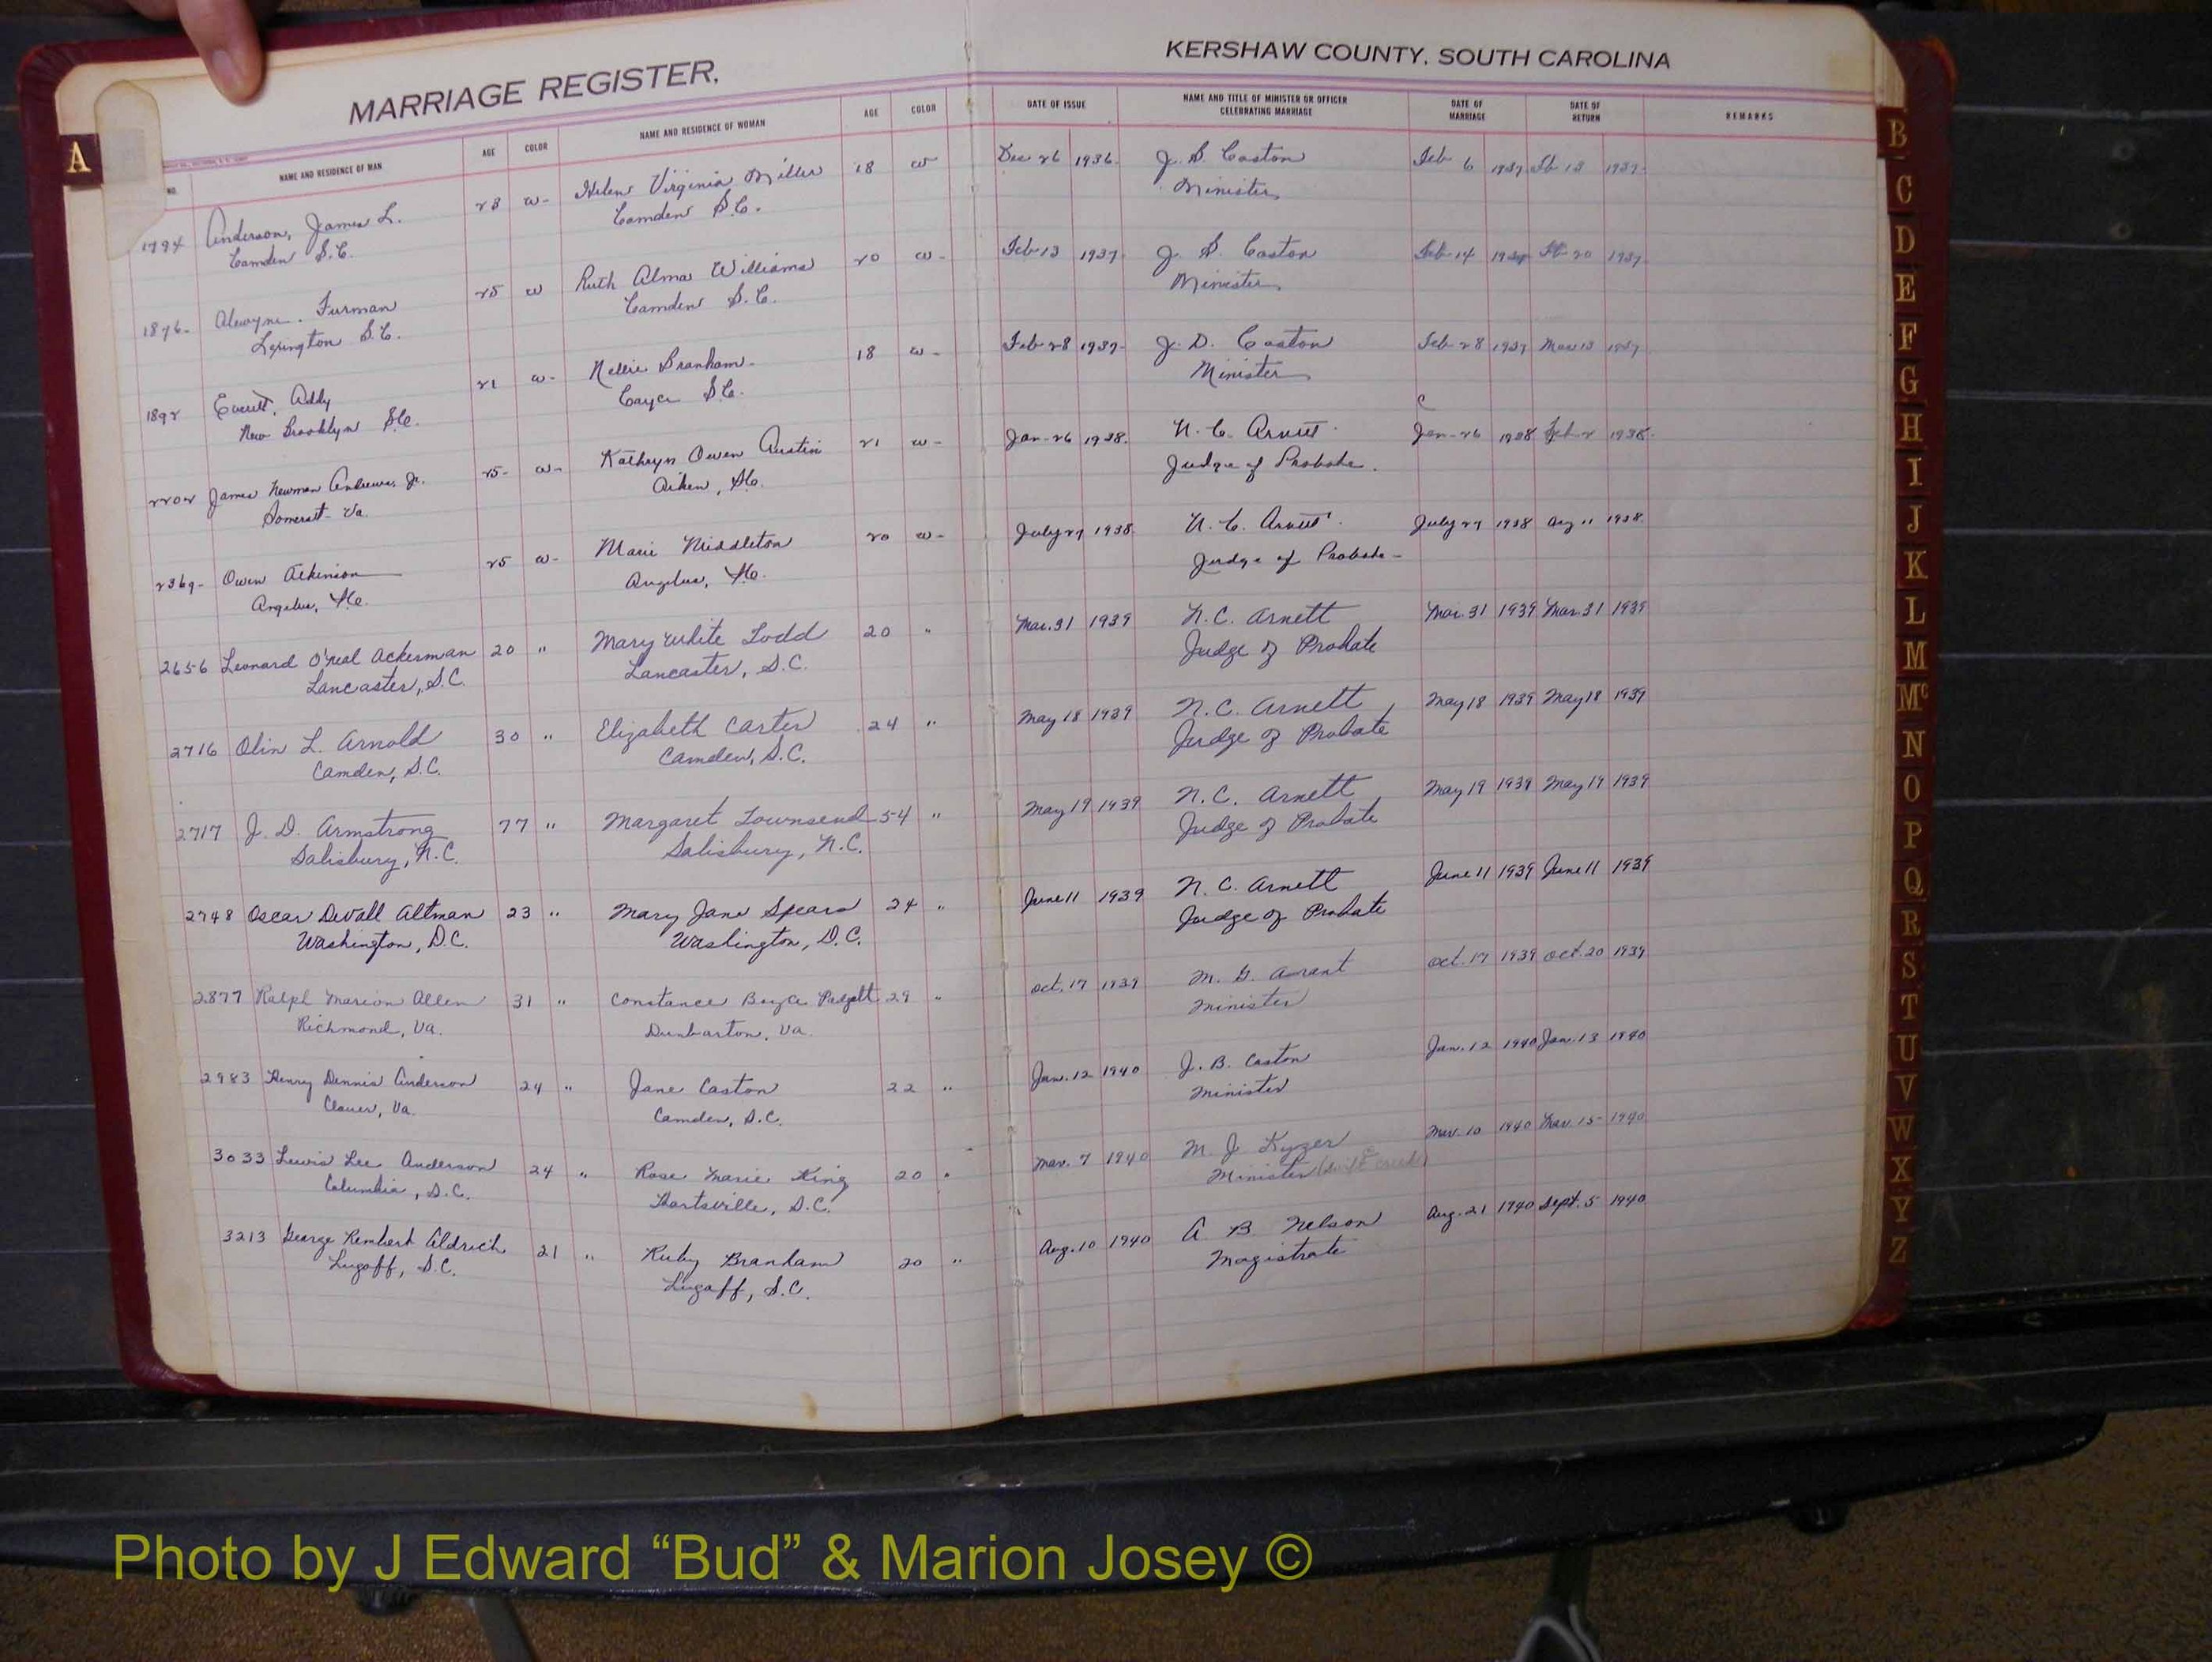 MARRIAGE REGISTER,
KERSHAW COUNTY, SOUTH CAROLINA
NO. NAME AND RESIDENCE OF MAN AGE COLOR NAME AND RESIDENCE OF WOMAN AGE COLOR DATE OF ISSUE NAME AND TITLE OF MINISTER OR OFFICER DATE OF DATE OF REMARKS
CELEBRATING MARRIAGE MARRIAGE RETURN
1794 Anderson, James L. 23 w- Helen Virginia Miller 18 w Dec 26 1936. J. B. Caston Feb 6 1937. Feb 13 1937.
Camden S.C. Camden S.C. Minister
1876- Alewyne. Furman 25 w Ruth Alma Williams 20 w- Feb 13 1937 J. B. Caston Feb 14 1937 Feb 20 1937.
Lexington S.C. Camden S.C. Minister
1892 Everett, Addy 21 w- Nellie Branham 18 w- Feb 28 1937- J. D. Caston Feb 28 1937 Mar 13 1937
New Brooklyn S.C. Cayce S.C. Minister
2202 James Newman Andrews, Jr. 25- w- Kathryn Owen Austin 21 w- Jan-26 1938. N. C. Arnett. Jan-26 1938 Feb 2 1938.
Somerset Va. Aiken, S.C. Judge of Probate.
2369- Owen Atkinson 25 w- Marie Middleton 20 w- July 27 1938. N. C. Arnett. July 27 1938 Aug 11 1938.
Angelus, S.C. Angelus, S.C. Judge of Probate-
2656 Leonard O'neal Ackerman 20 " Mary White Todd 20 " Mar. 31 1939 N.C. Arnett Mar. 31 1939 Mar. 31 1939
Lancaster, S.C. Lancaster, S.C. Judge of Probate
2716 Olin L. Arnold 30 " Elizabeth Carter 24 " May 18 1939 N.C. Arnett May 18 1939 May 18 1939
Camden, S.C. Camden, S.C. Judge of Probate
2717 J. D. Armstrong 77 " Margaret Townsend 54 " May 19 1939 N.C. Arnett May 19 1939 May 19 1939
Salisbury, N.C. Salisbury, N.C. Judge of Probate
2748 Oscar Devall Altman 23 " Mary Jane Spears 24 " June 11 1939 N. C. Arnett June 11 1939 June 11 1939
Washington, D.C. Washington, D.C. Judge of Probate
2877 Ralph Marion Allen 31 " Constance Boyce 29 " Oct. 17 1939 M. G. Arant Oct. 17 1939 Oct. 20 1939
Richmond, Va. Dunbarton, Va. Minister
2983 Henry Dennis Anderson 24 " Jane Caston 22 " Jan. 12 1940 J. B. Caston Jan. 12 1940 Jan. 13 1940
Clover, Va. Camden, S.C. Minister
3033 Lewis Lee Anderson 24 " Rose Marie King 20 " Mar. 7 1940 M. J. Kyzer Mar. 10 1940 Mar. 15 1940
Columbia, S.C. Hartsville, S.C. Minister (Swift Creek)
3213 George Rembert Aldrich 21 " Ruby Branham 20 " Aug. 10 1940 A B Nelson Aug. 21 1940 Sept. 5 1940
Lugoff, S.C. Lugoff, S.C. Magistrate
A
B
C
D
E
F
G
H
I
J
K
L
M
Mc
N
O
P
Q
R
S
T
U
V
W
X
Y
Z
Photo by J Edward “Bud” & Marion Josey ©